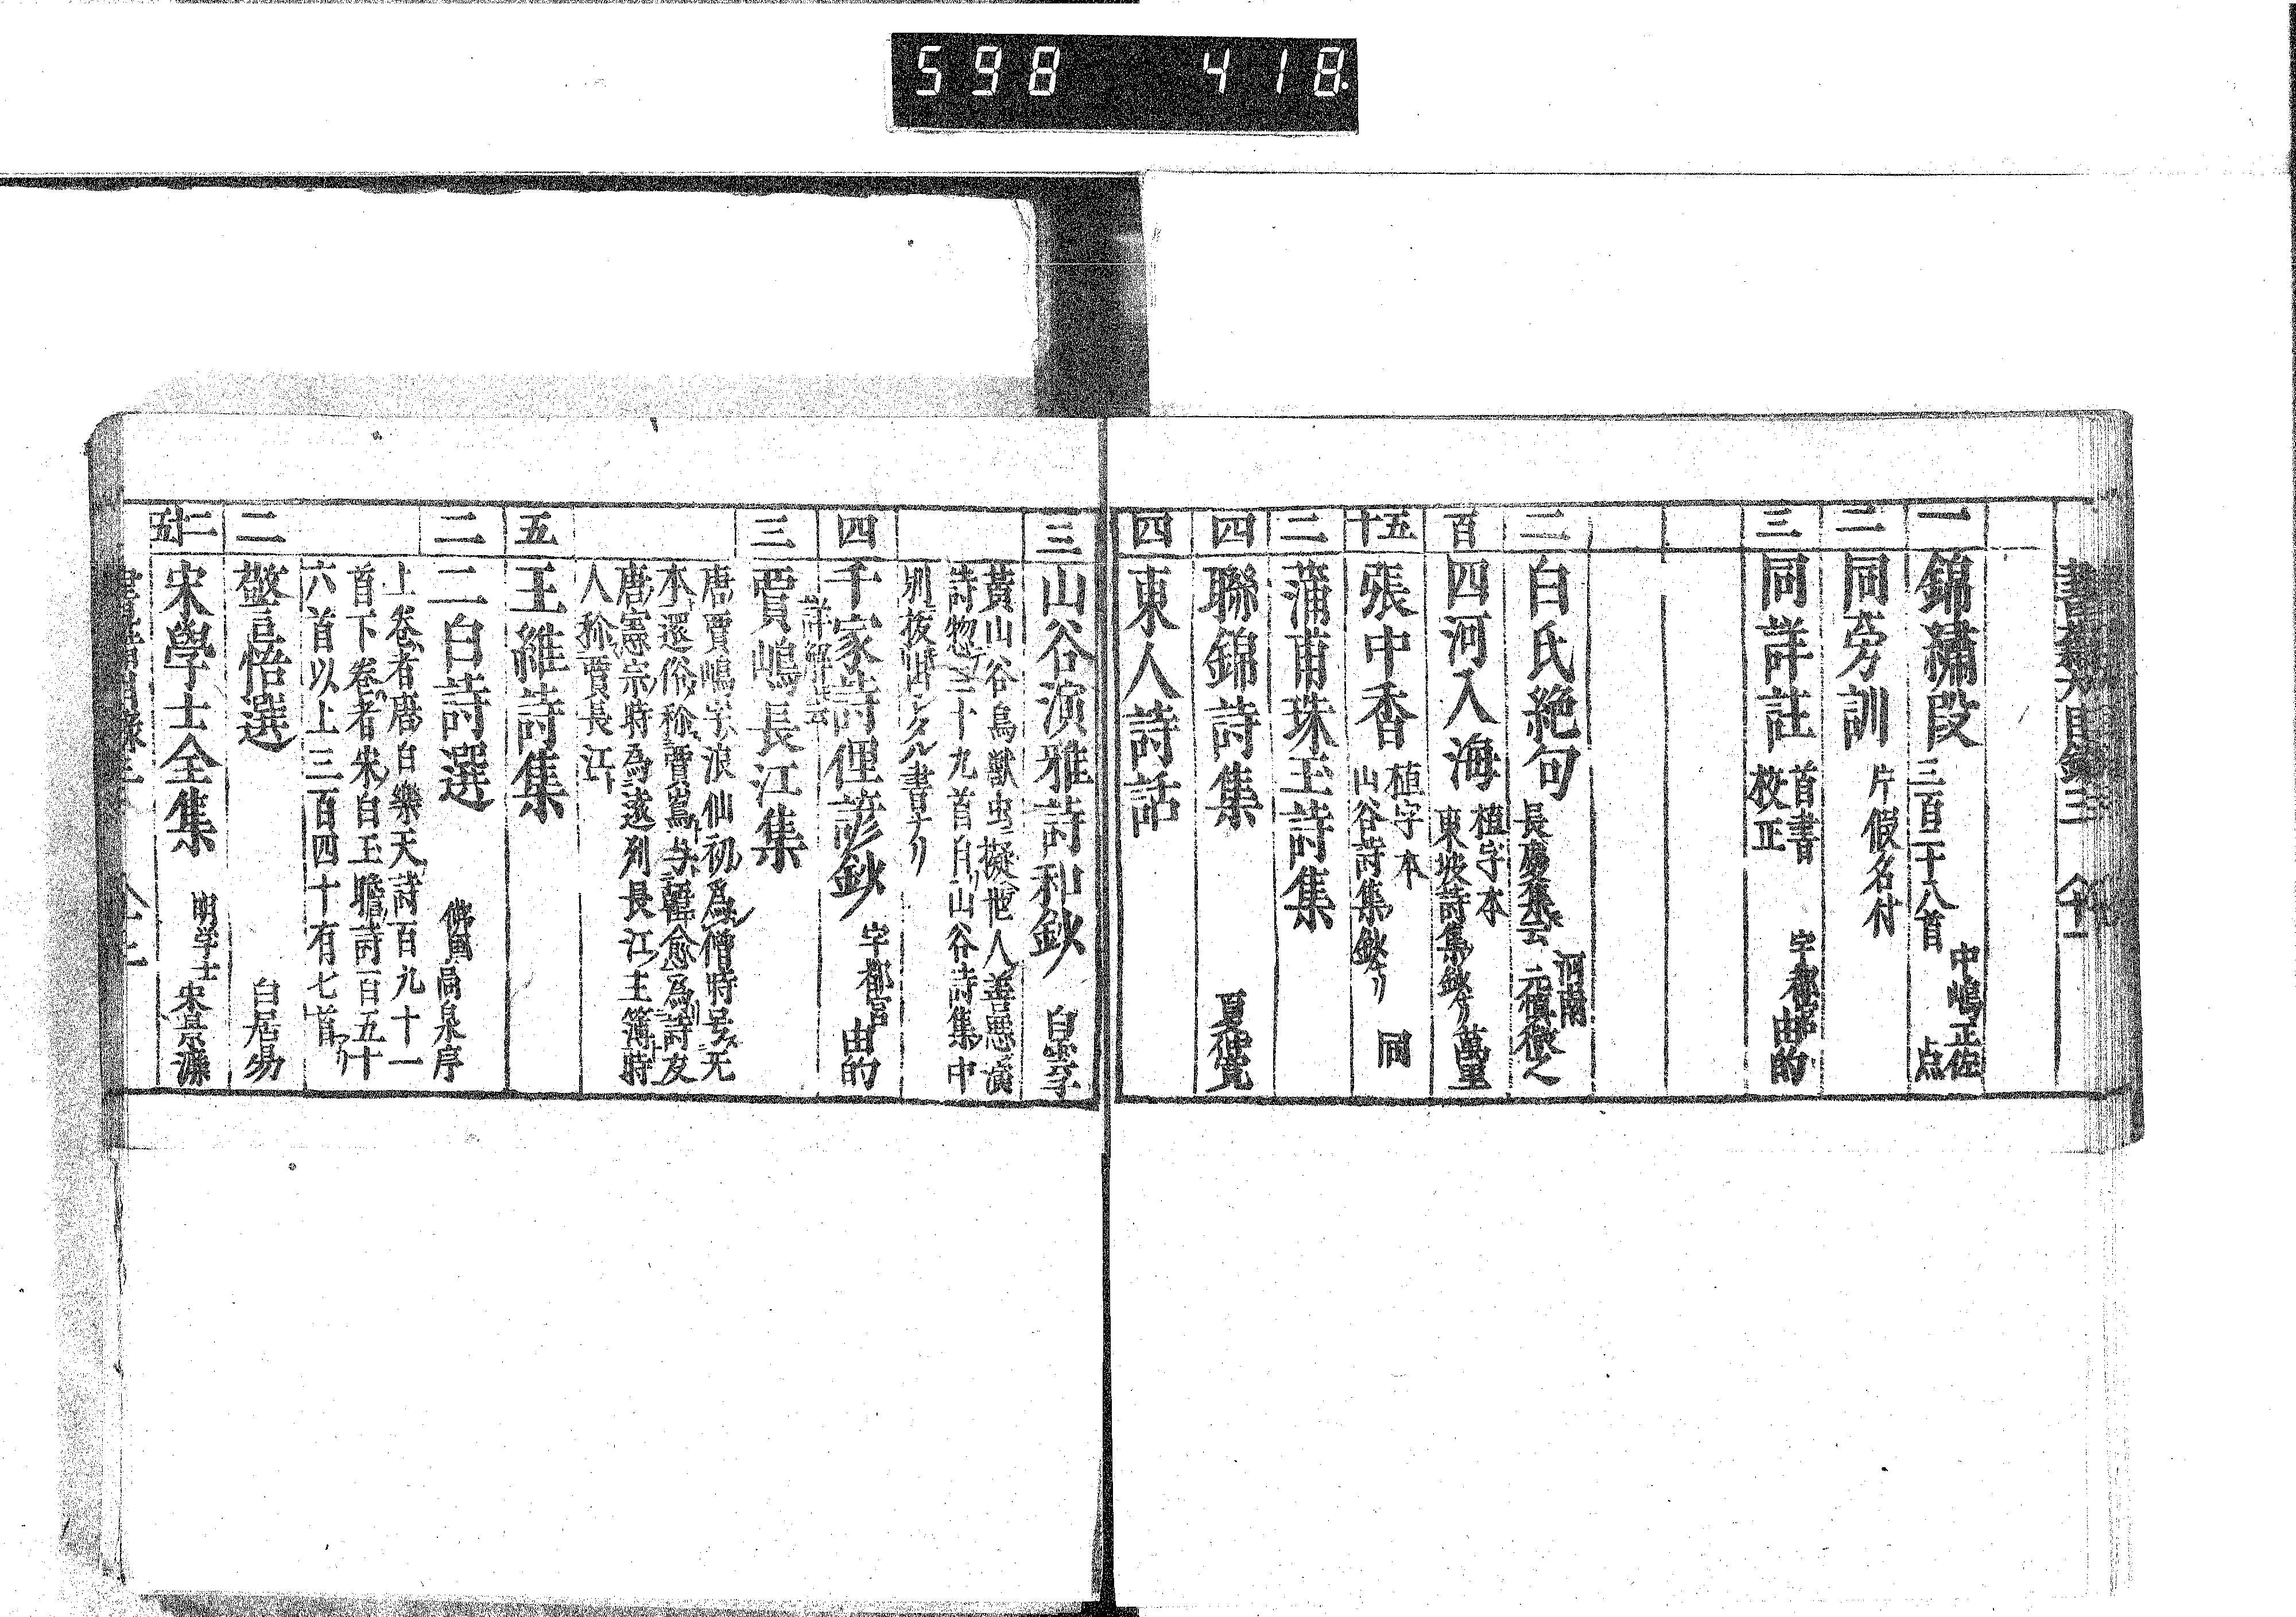 598 418
一 錦繡段 三百二十八首 中嶋正佐 点
二 同旁訓 片假名付
三 同詳註 首書 校正 宇都宮 由的
二 白氏絶句 長慶集云 河南 元稹微之
百 四河入海 植字本 東坡詩集鈔ナリ 萬里
五十 張中香 植字本 山谷詩集鈔ナリ 同
二 蒲甫珠玉詩集
四 聯錦詩集 夏寅
四 東人詩話
三 山谷演雅詩和鈔 白雲子
黃山谷鳥獣虫擬世人善悪演
詩惣三十九首白山谷詩集中
別抜出シタル書ナリ
四 千家詩俚諺鈔 宇都宮 由的
詳解云
三 賈嶋長江集
唐賈嶋字浪仙初爲僧時号无
本還俗称賈嶌与韓愈爲詩友
唐憲宗時爲遂列長江主簿時
人称賈長江
五 王維詩集
二 二白詩選 佛国高泉序
上卷者唐白樂天詩百九十一
首下卷者宋白玉蟾詩一百五十
六首以上三百四十有七首
二 警悟選 白居易
二十五 宋學士全集 明学士 宋景濂